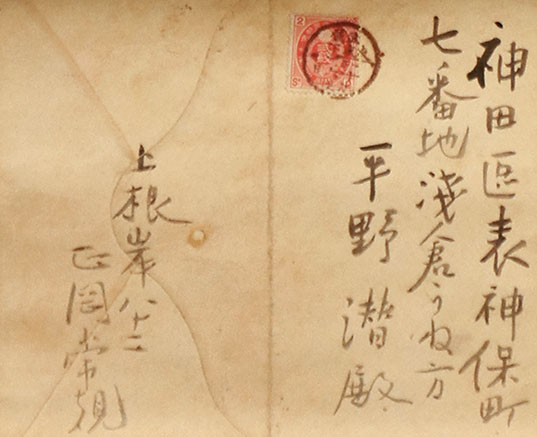 神田區表神保町
七番地淺倉うね方
平野潜殿
上根岸八十二
正岡常規
2